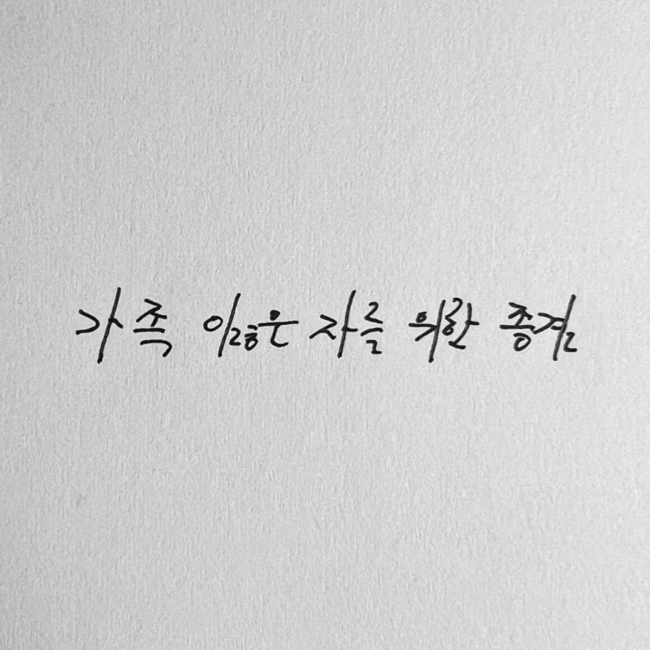 가족 잃은 자를 위한 종결